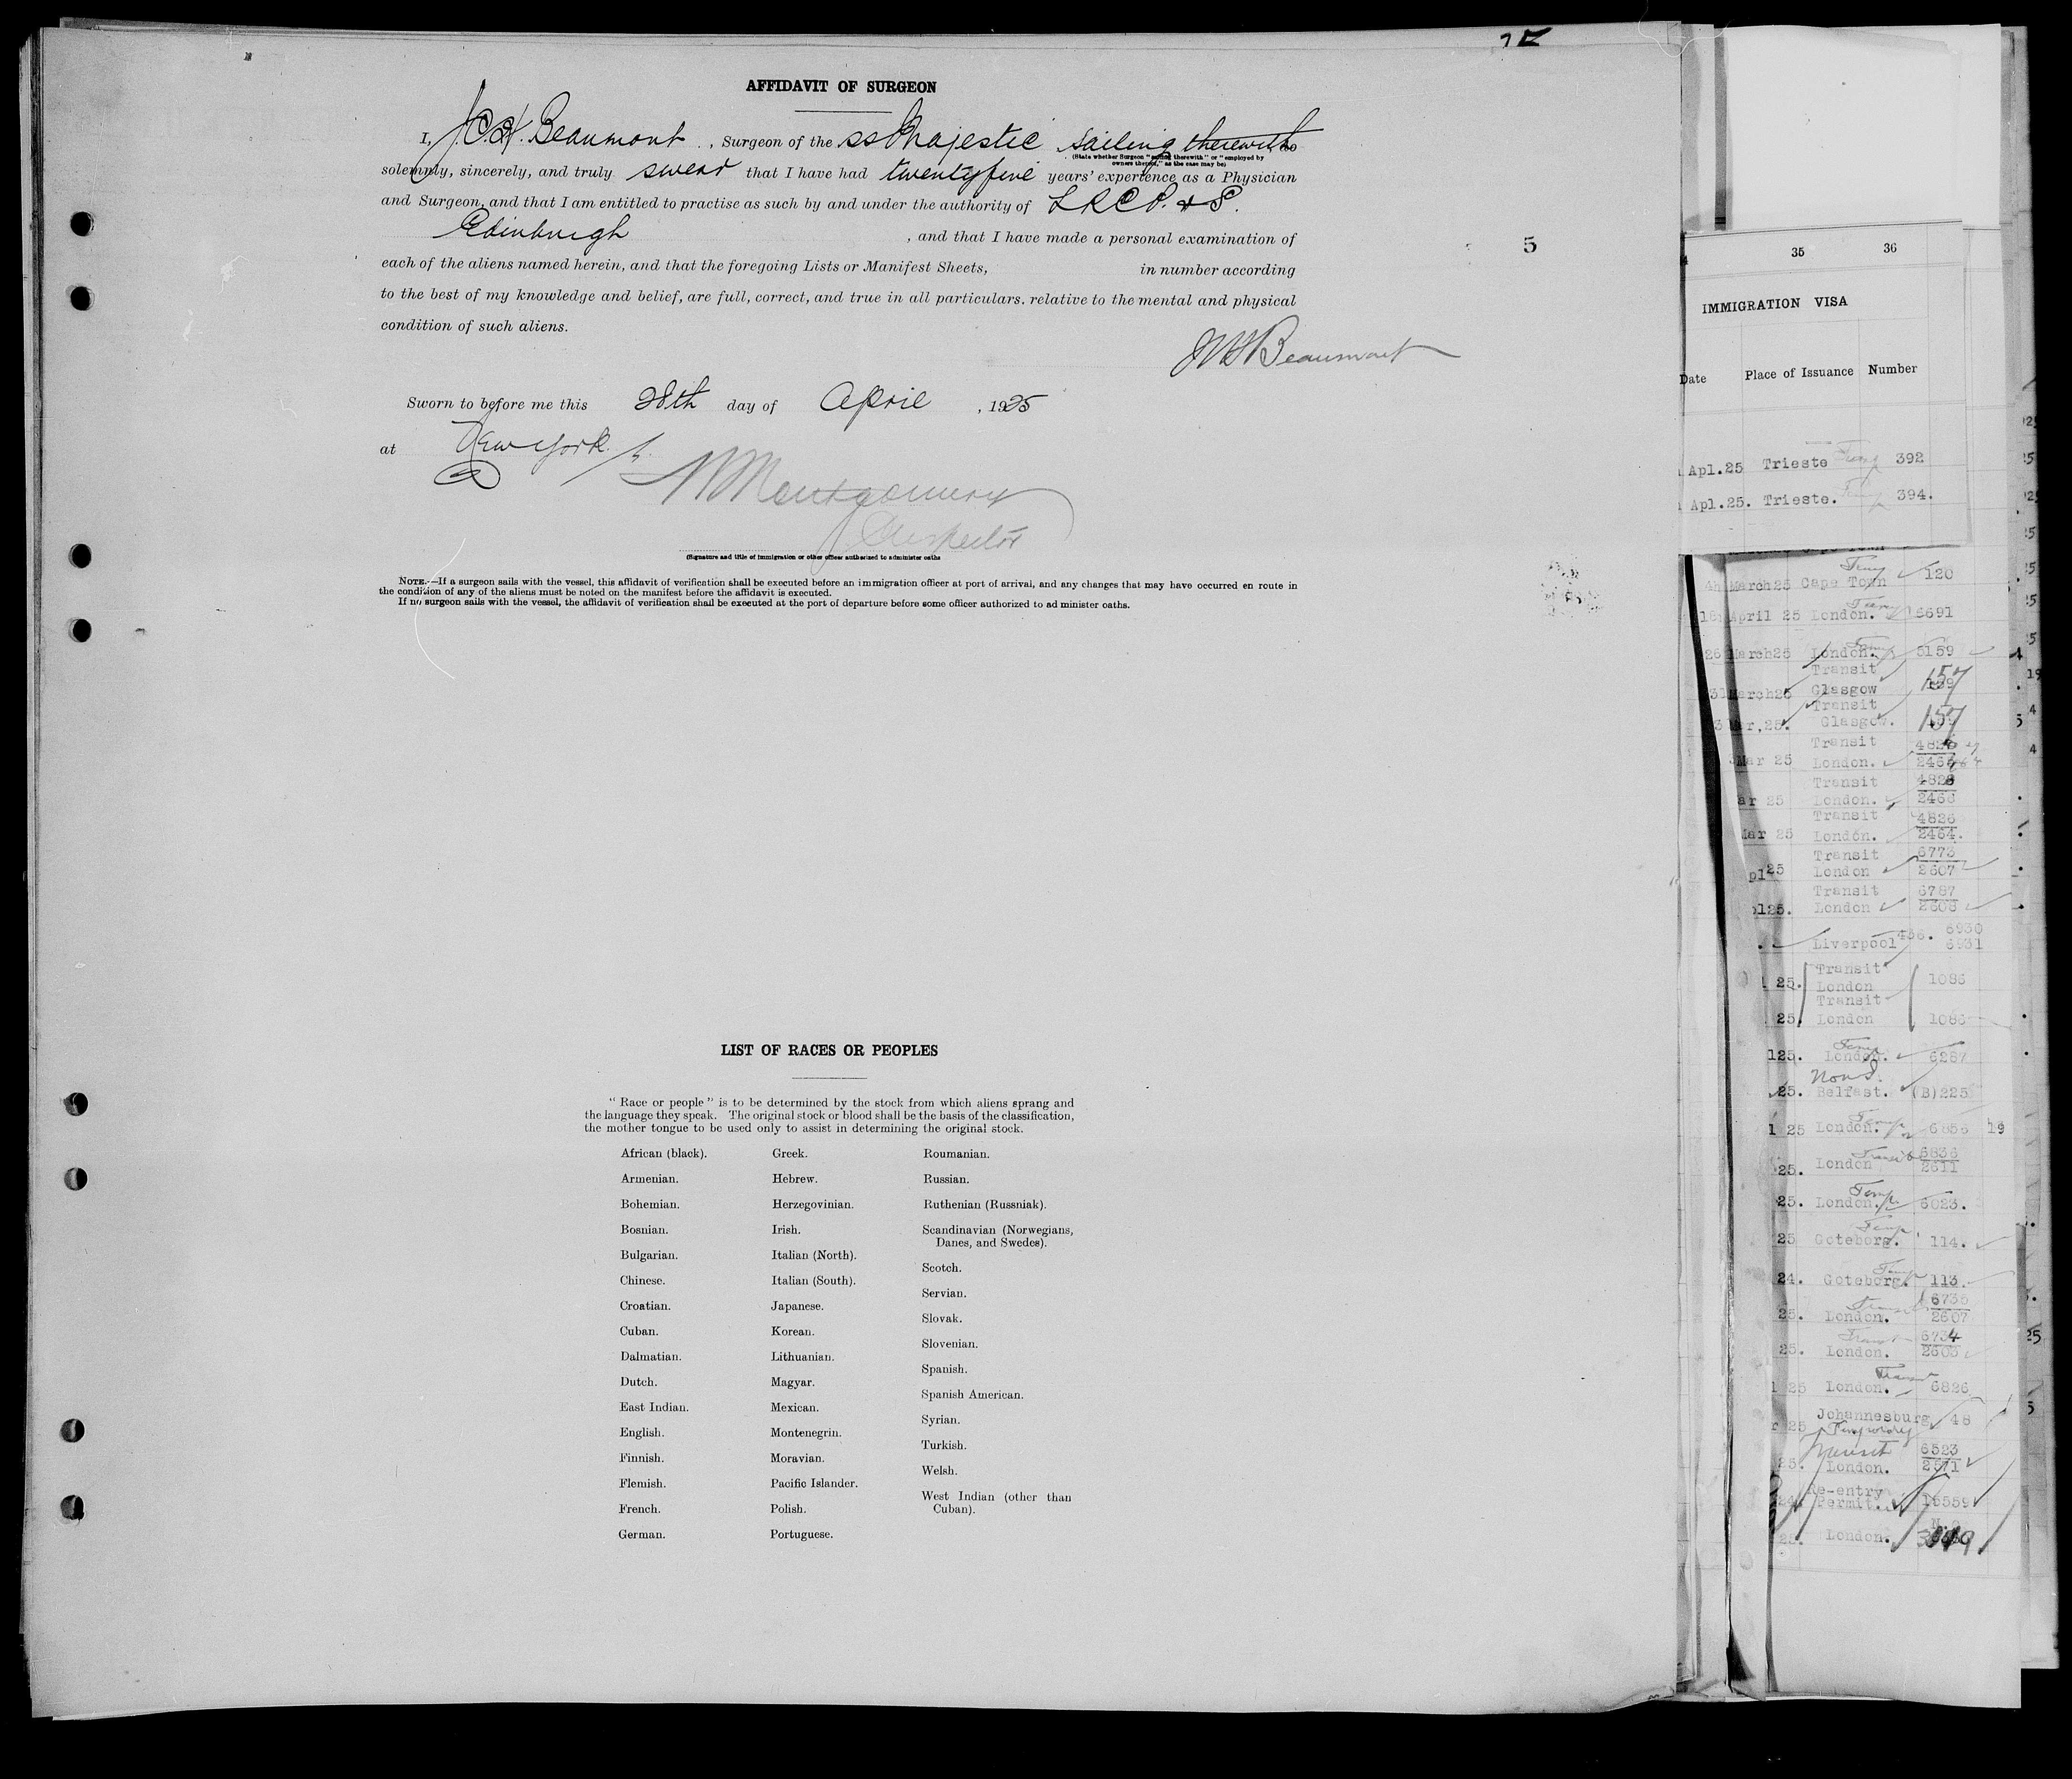 AFFIDAVIT OF SURGEON
I, J.C.H. Beaumont , Surgeon of the ss Majestic sailing therewith do
(State whether Surgeon "sailing therewith" or "employed by
owners thereof," as the case may be)
solemnly, sincerely, and truly swear that I have had twentyfive years' experience as a Physician
and Surgeon, and that I am entitled to practise as such by and under the authority of LRCP. & S.
Edinburgh , and that I have made a personal examination of
5
each of the aliens named herein, and that the foregoing Lists or Manifest Sheets, in number according
to the best of my knowledge and belief, are full, correct, and true in all particulars, relative to the mental and physical
condition of such aliens.
JCHBeaumont
Sworn to before me this 28th day of April , 1925
at New York.
Montgomery
Inspector
(Signature and title of immigration or other officer authorized to administer oaths
NOTE.—If a surgeon sails with the vessel, this affidavit of verification shall be executed before an immigration officer at port of arrival, and any changes that may have occurred en route in
the condition of any of the aliens must be noted on the manifest before the affidavit is executed.
If no surgeon sails with the vessel, the affidavit of verification shall be executed at the port of departure before some officer authorized to ad minister oaths.
LIST OF RACES OR PEOPLES
"Race or people" is to be determined by the stock from which aliens sprang and
the language they speak. The original stock or blood shall be the basis of the classification,
the mother tongue to be used only to assist in determining the original stock.
African (black).
Armenian.
Bohemian.
Bosnian.
Bulgarian.
Chinese.
Croatian.
Cuban.
Dalmatian.
Dutch.
East Indian.
English.
Finnish.
Flemish.
French.
German.
Greek.
Hebrew.
Herzegovinian.
Irish.
Italian (North).
Italian (South).
Japanese.
Korean.
Lithuanian.
Magyar.
Mexican.
Montenegrin.
Moravian.
Pacific Islander.
Polish.
Portuguese.
Roumanian.
Russian.
Ruthenian (Russniak).
Scandinavian (Norwegians,
Danes, and Swedes).
Scotch.
Servian.
Slovak.
Slovenian.
Spanish.
Spanish American.
Syrian.
Turkish.
Welsh.
West Indian (other than
Cuban).
35 36
IMMIGRATION VISA
Date Place of Issuance Number
Apl.25 Trieste Temp 392
Apl.25. Trieste. Temp 394.
Temp
March25 Cape Town 120
Temp
April 25 London. 6691
Temp
26 March25 London. 5159
Transit
31March25 Glasgow 157
Transit
Mar,25. Glasgow. 157
Transit
Mar 25 London.
Transit 4828
ar 25 London. 2468
Transit 4826
Mar 25 London. 2464.
Transit 6773
pl25 London 2607
Transit 6787
pl25. London 2608
6930
Liverpool 6931
Transit
25. London 1086
Transit
25. London 1086
Temp
25. London. 6287
Non I.
25. Belfast. (B)225
25 London. Temp 6856 19
Transit 6836
25. London 2611
Temp
25. London. 6023.
Temp
25 Goteborg. 114.
Temp
24. Goteborg. 113.
Transit 6735
25. London. 2607
Transit 6734
25. London. 2603
Transit
25 London. 6826
Johannesburg 48
25 Temporary
Transit 6523
25. London. 2571
Re-entry
24. Permit. 15559
London.